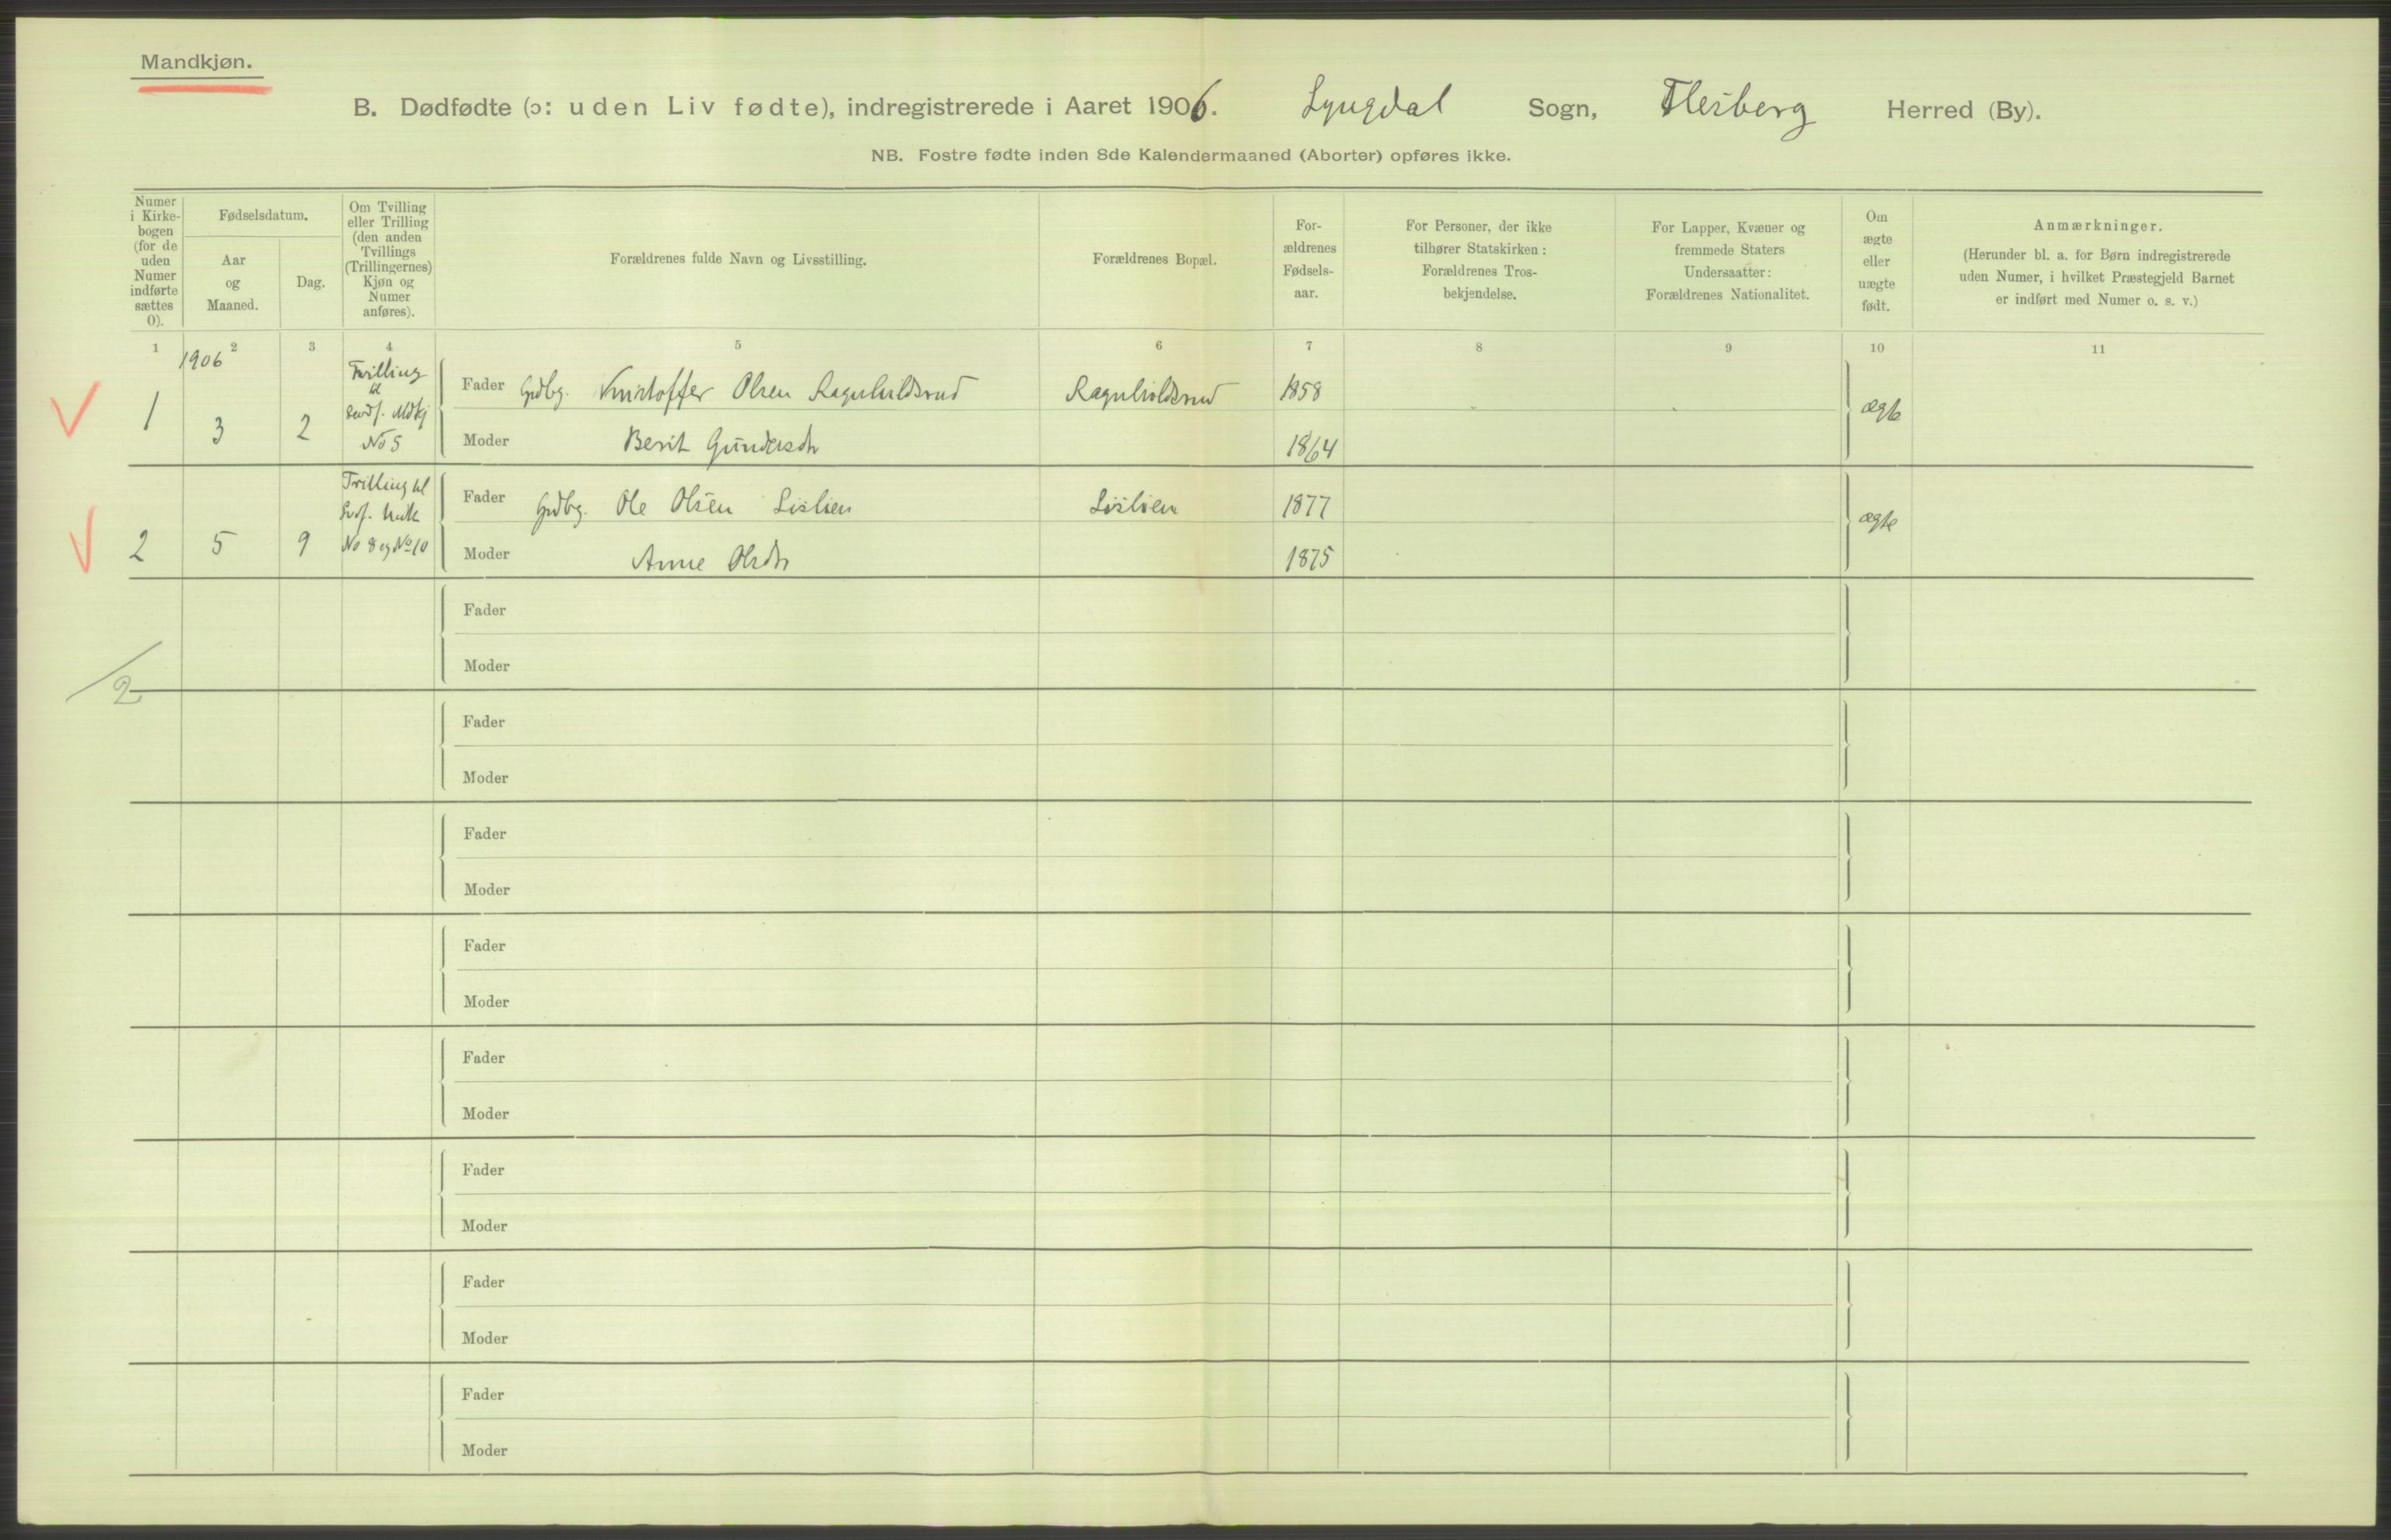 Mandkjøn.
B. Dødfødte (ɔ: uden Liv fødte), indregistrerede i Aaret 1906. Lyngdal Sogn, Flesberg Herred (By).
NB. Fostre fødte inden 8de Kalendermaaned (Aborter) opføres ikke.
Numer i Kirkebogen (for de uden Numer indførte sættes 0).
Fødselsdatum.
Aar og Maaned.
Dag.
Om Tvilling eller Trilling (den anden Tvillings (Trillingernes) Kjøn og Numer anføres).
Forældrenes fulde Navn og Livsstilling.
Forældrenes Bopæl.
Forældrenes Fødselsaar.
For Personer, der ikke tilhører Statskirken: Forældrenes Trosbekjendelse.
For Lapper, Kvæner og fremmede Staters Undersaatter: Forældrenes Nationalitet.
Om ægte eller uægte født.
Anmærkninger.
(Herunder bl. a. for Børn indregistrerede uden Numer, i hvilket Præstegjeld Barnet er indført med Numer o. s. v.)
1 2 3 4 5 6 7 8 9 10 11
1906
1 3 2 Tvilling til Mdkj No 5
Fader Grdbg. Kristoffer Olsen Ragnhildsrud Ragnhildsrud 1858 ægte
Moder Berit Gundersdtr 1864
2 5 9 Trilling til No 8 og No 10
Fader Grdbg. Ole Olsen Lislien Lislien 1877 ægte
Moder Anne Olsdtr 1875
Fader
Moder
2
Fader
Moder
Fader
Moder
Fader
Moder
Fader
Moder
Fader
Moder
Fader
Moder
Fader
Moder